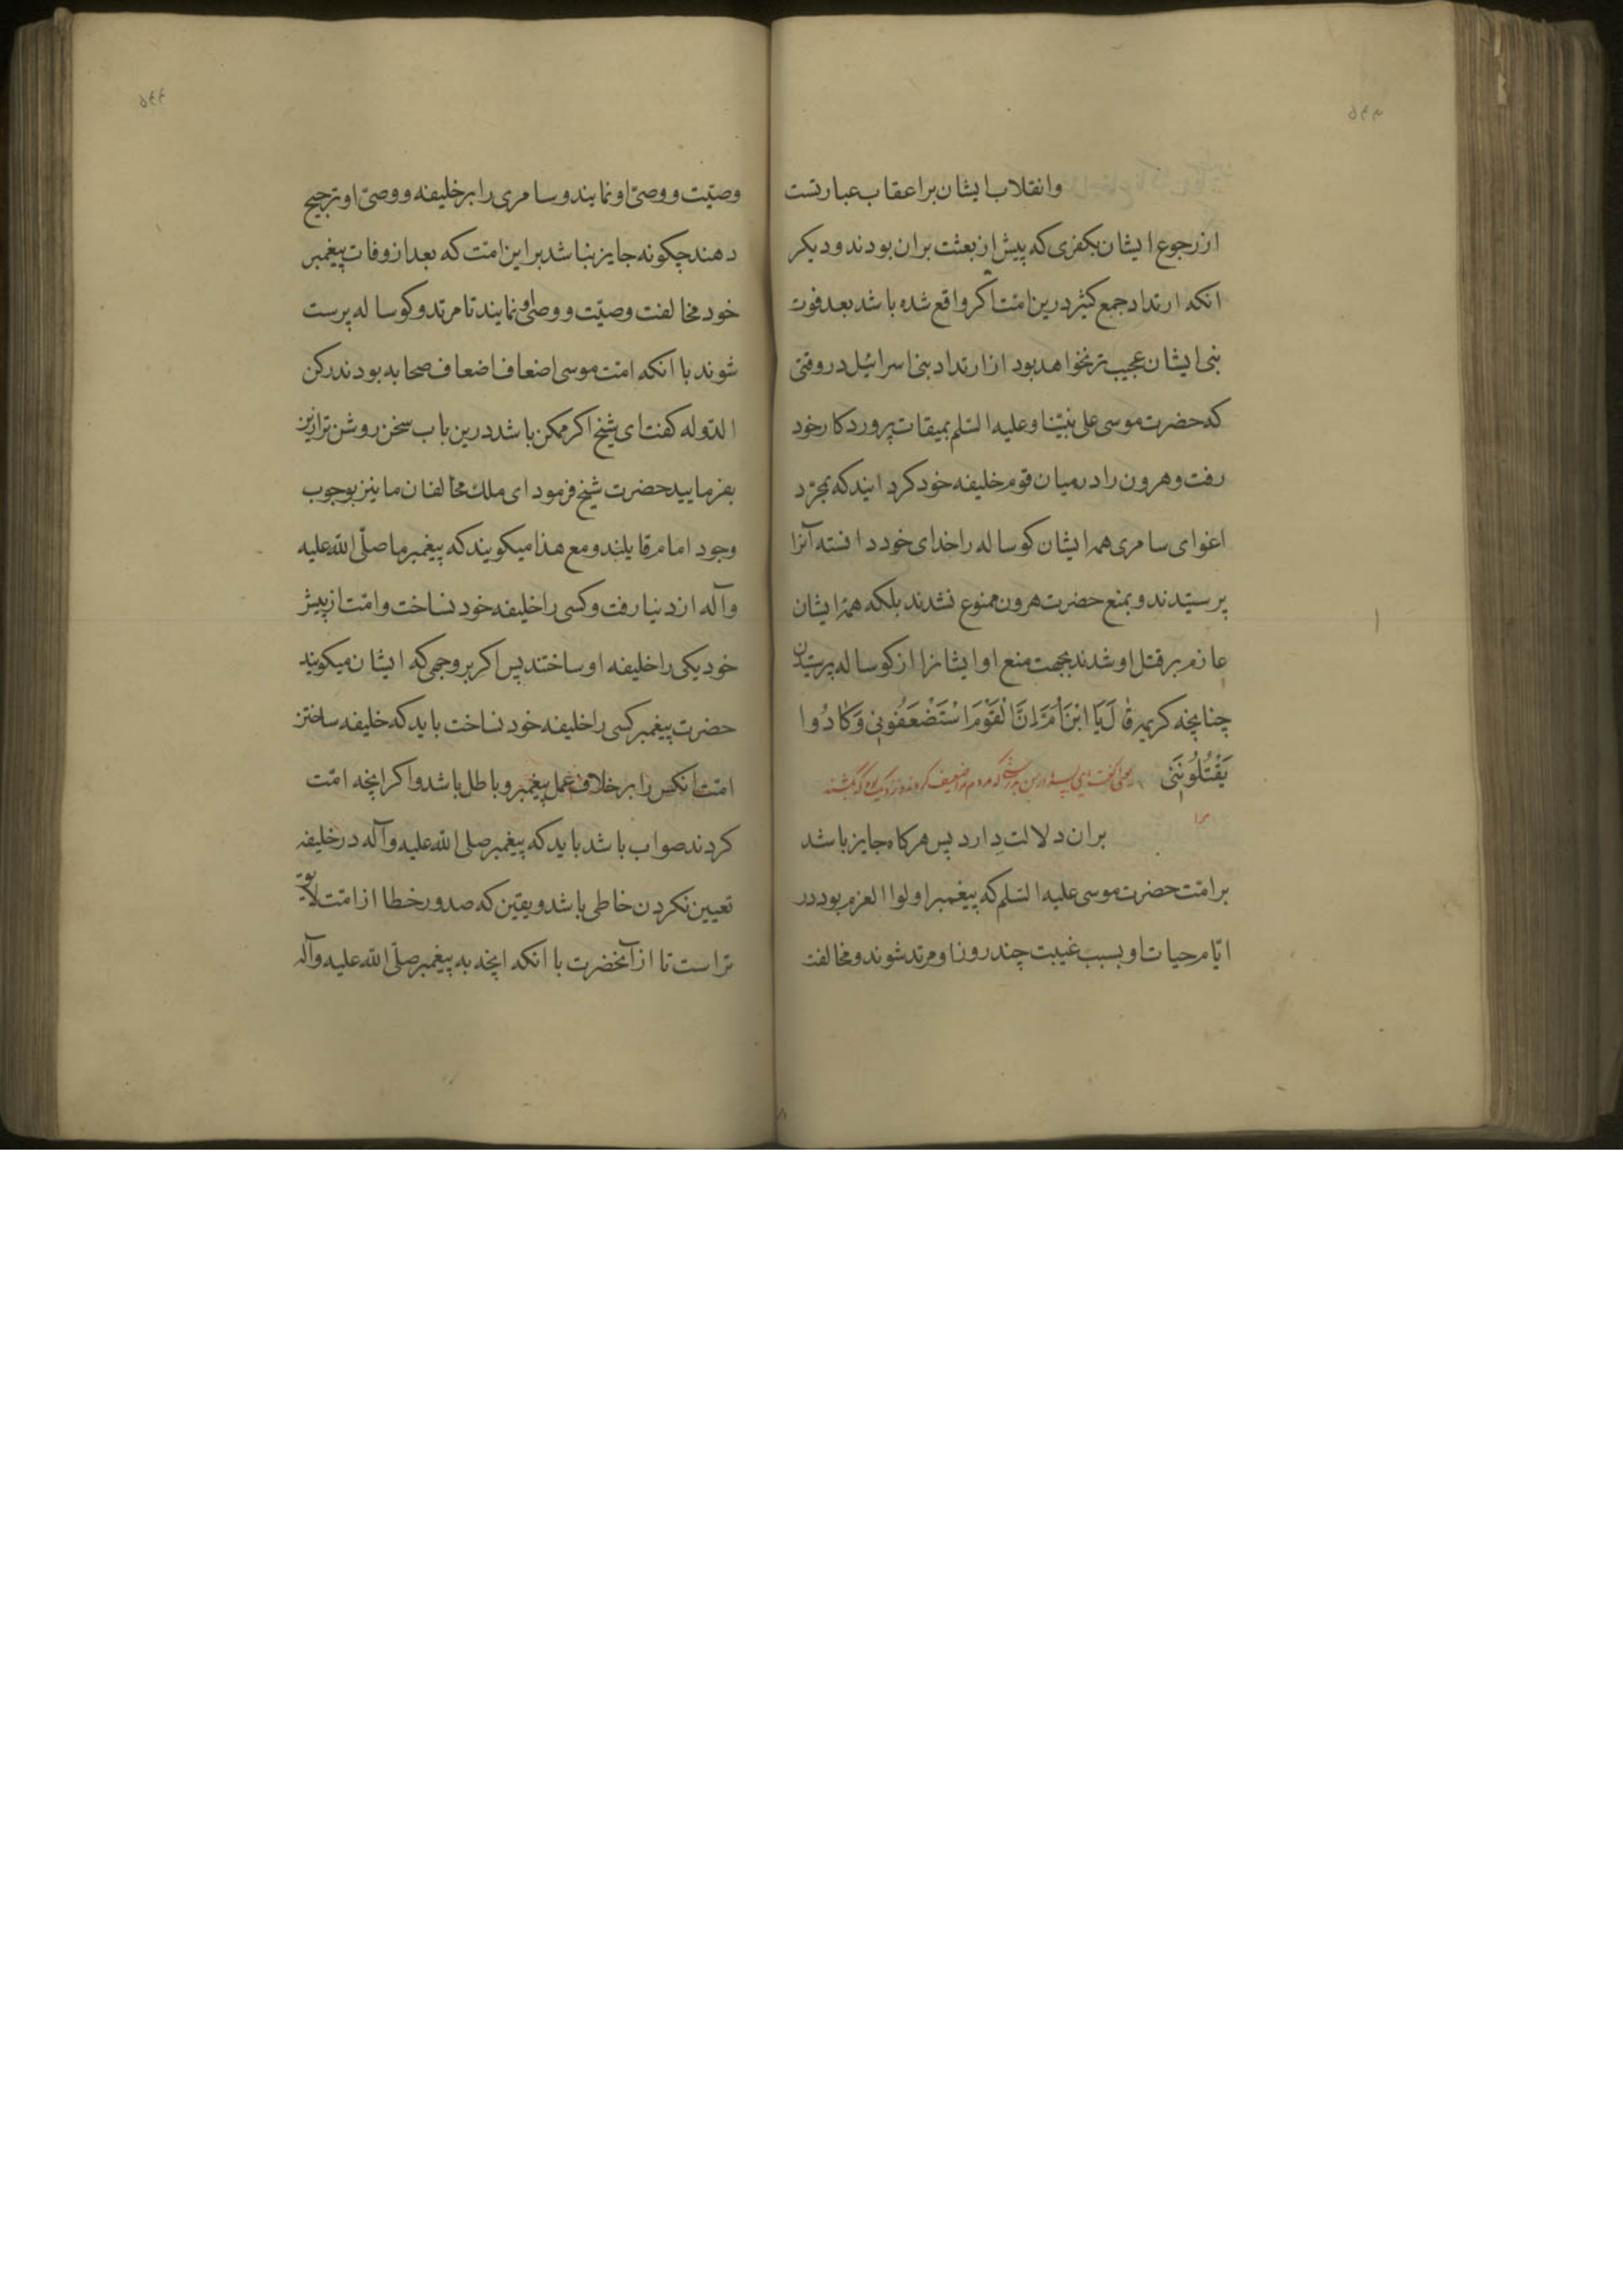 وانقلاب ایشان بر اعقاب عبارتست
از رجوع ایشان بکفری که پیش از بعثت بران بودند و دیکر
انکه ارتداد جمع کثیر درین امّت اکر واقع شده باشد بعد فوت
نبی ایشان عجیب تر نخواهد بود از ارتداد بنی اسرائیل در وقتی
که حضرت موسی علی نبیّنا و علیه السّلم بمیقات پروردکار خود
رفت و هرون را در میان قوم خلیفه خود کردانید که بمجرّد
اغوای سامری همه ایشان کوساله را خدای خود دانسته آنرا
پرستیدند و بمنع حضرت هرون ممنوع نشدند بلکه همهٔ ایشان
عازم بر قتل او شدند بجهت منع او ایشانرا از کوساله پرستیدن
چنانچه کریمه قٰالَ یَا ابْنَ أُمَّ اِنَّ الْقَوْمَ اسْتَضْعَفُونِی وَکٰادُوا
یَقْتُلُونَنِی
مرا
بران دلالت دارد پس هرکاه جایز باشد
بر امّت حضرت موسی علیه السّلم که پیغمبر اولوا العزم بود در
ایّام حیات او بسبب غیبت چند روز او مرتد شوند و مخالفت
وصیّت و وصیّ او نمایند و سامری را بر خلیفه و وصیّ او ترجیح
دهند چکونه جایز نباشد بر این امّت که بعد از وفات پیغمبر
خود مخالفت وصیّت و وصیّ او نمایند تا مرتد و کوساله پرست
شوند با انکه امّت موسی اضعاف اضعاف صحابه بودند رکن
الدّوله کفت ای شیخ اکر ممکن باشد درین باب سخن روشن تر ازین
بفرمایید حضرت شیخ فرمود ای ملک مخالفان ما نیز بوجوب
وجود امام قایلند و مع هذا میکویند که پیغمبر ما صلّی الله علیه
وآله از دنیا رفت و کسی را خلیفه خود نساخت و امّت از پیش
خود یکی را خلیفه او ساختند پس اکر بر وجهی که ایشان میکویند
حضرت پیغمبر کسی را خلیفه خود نساخت باید که خلیفه ساختن
امّت انکس را بر خلاف عمل پیغمبر و باطل باشد و اکر انچه امّت
کردند صواب باشد باید که پیغمبر صلی الله علیه وآله در خلیفه
تعیین نکردن خاطی باشد و یقین که صدور خطا از امّت لایق
تر است تا از آنحضرت با انکه انچه به پیغمبر صلّی الله علیه وآله